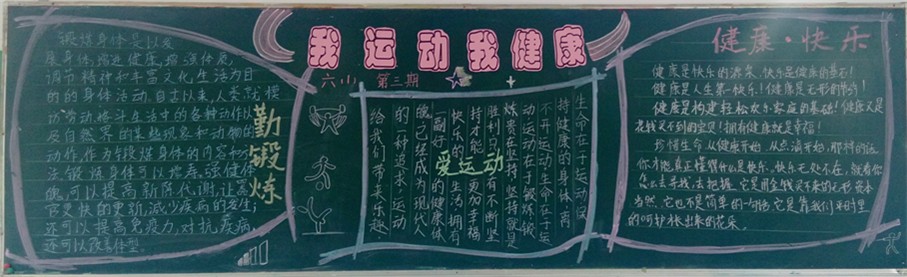 我运动我健康
六(1) 第三期
锻炼身体是以发
展身体,增进健康,增强体质,
调节精神和丰富文化生活为目
的的身体活动。自古以来,人类就模
仿劳动格斗生活中的各种动作以
及自然界的某些现象和动物的
动作,作为锻炼身体的内容和方
法。锻炼身体可以增寿,强健体
魄,可以提高新陈代谢,让
它更快的更新,减少疾病的发生;
还可以提高免疫力,对抗疾病,
还可以改善体型。
勤锻炼
爱运动
生命在于运动,保
持健康的身体,离
不开运动。生命在于运
动,运动在于锻炼,锻
炼贵在坚持,坚持就是
胜利。只有不断坚
持才能更加幸福
快乐的生活。拥有
一副好的健康体
魄,已经成为现代人
的一种追求。运动
给我们带来乐趣
健康·快乐
健康是快乐的源泉,快乐是健康的基石!
健康是人生第一快乐!健康是无形的节约!
健康是构建轻松欢乐家庭的基础!健康又是
花钱买不到的宝贝!拥有健康就是幸福!
珍惜生命从健康开始,从点滴开始,那样的话,
你才能真正懂得什么是快乐。快乐无处不在,就看你
怎么去寻找,去把握,它是用金钱买不来的无形资本
当然,它也不是简单的一句话,它是靠我们平时里
的呵护换出来的花朵。